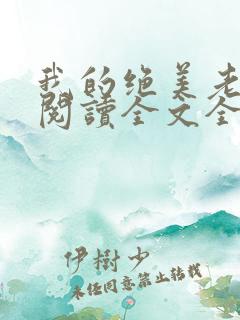 我的绝美老
阅读全文全
伊樹少
未经同意禁止转载